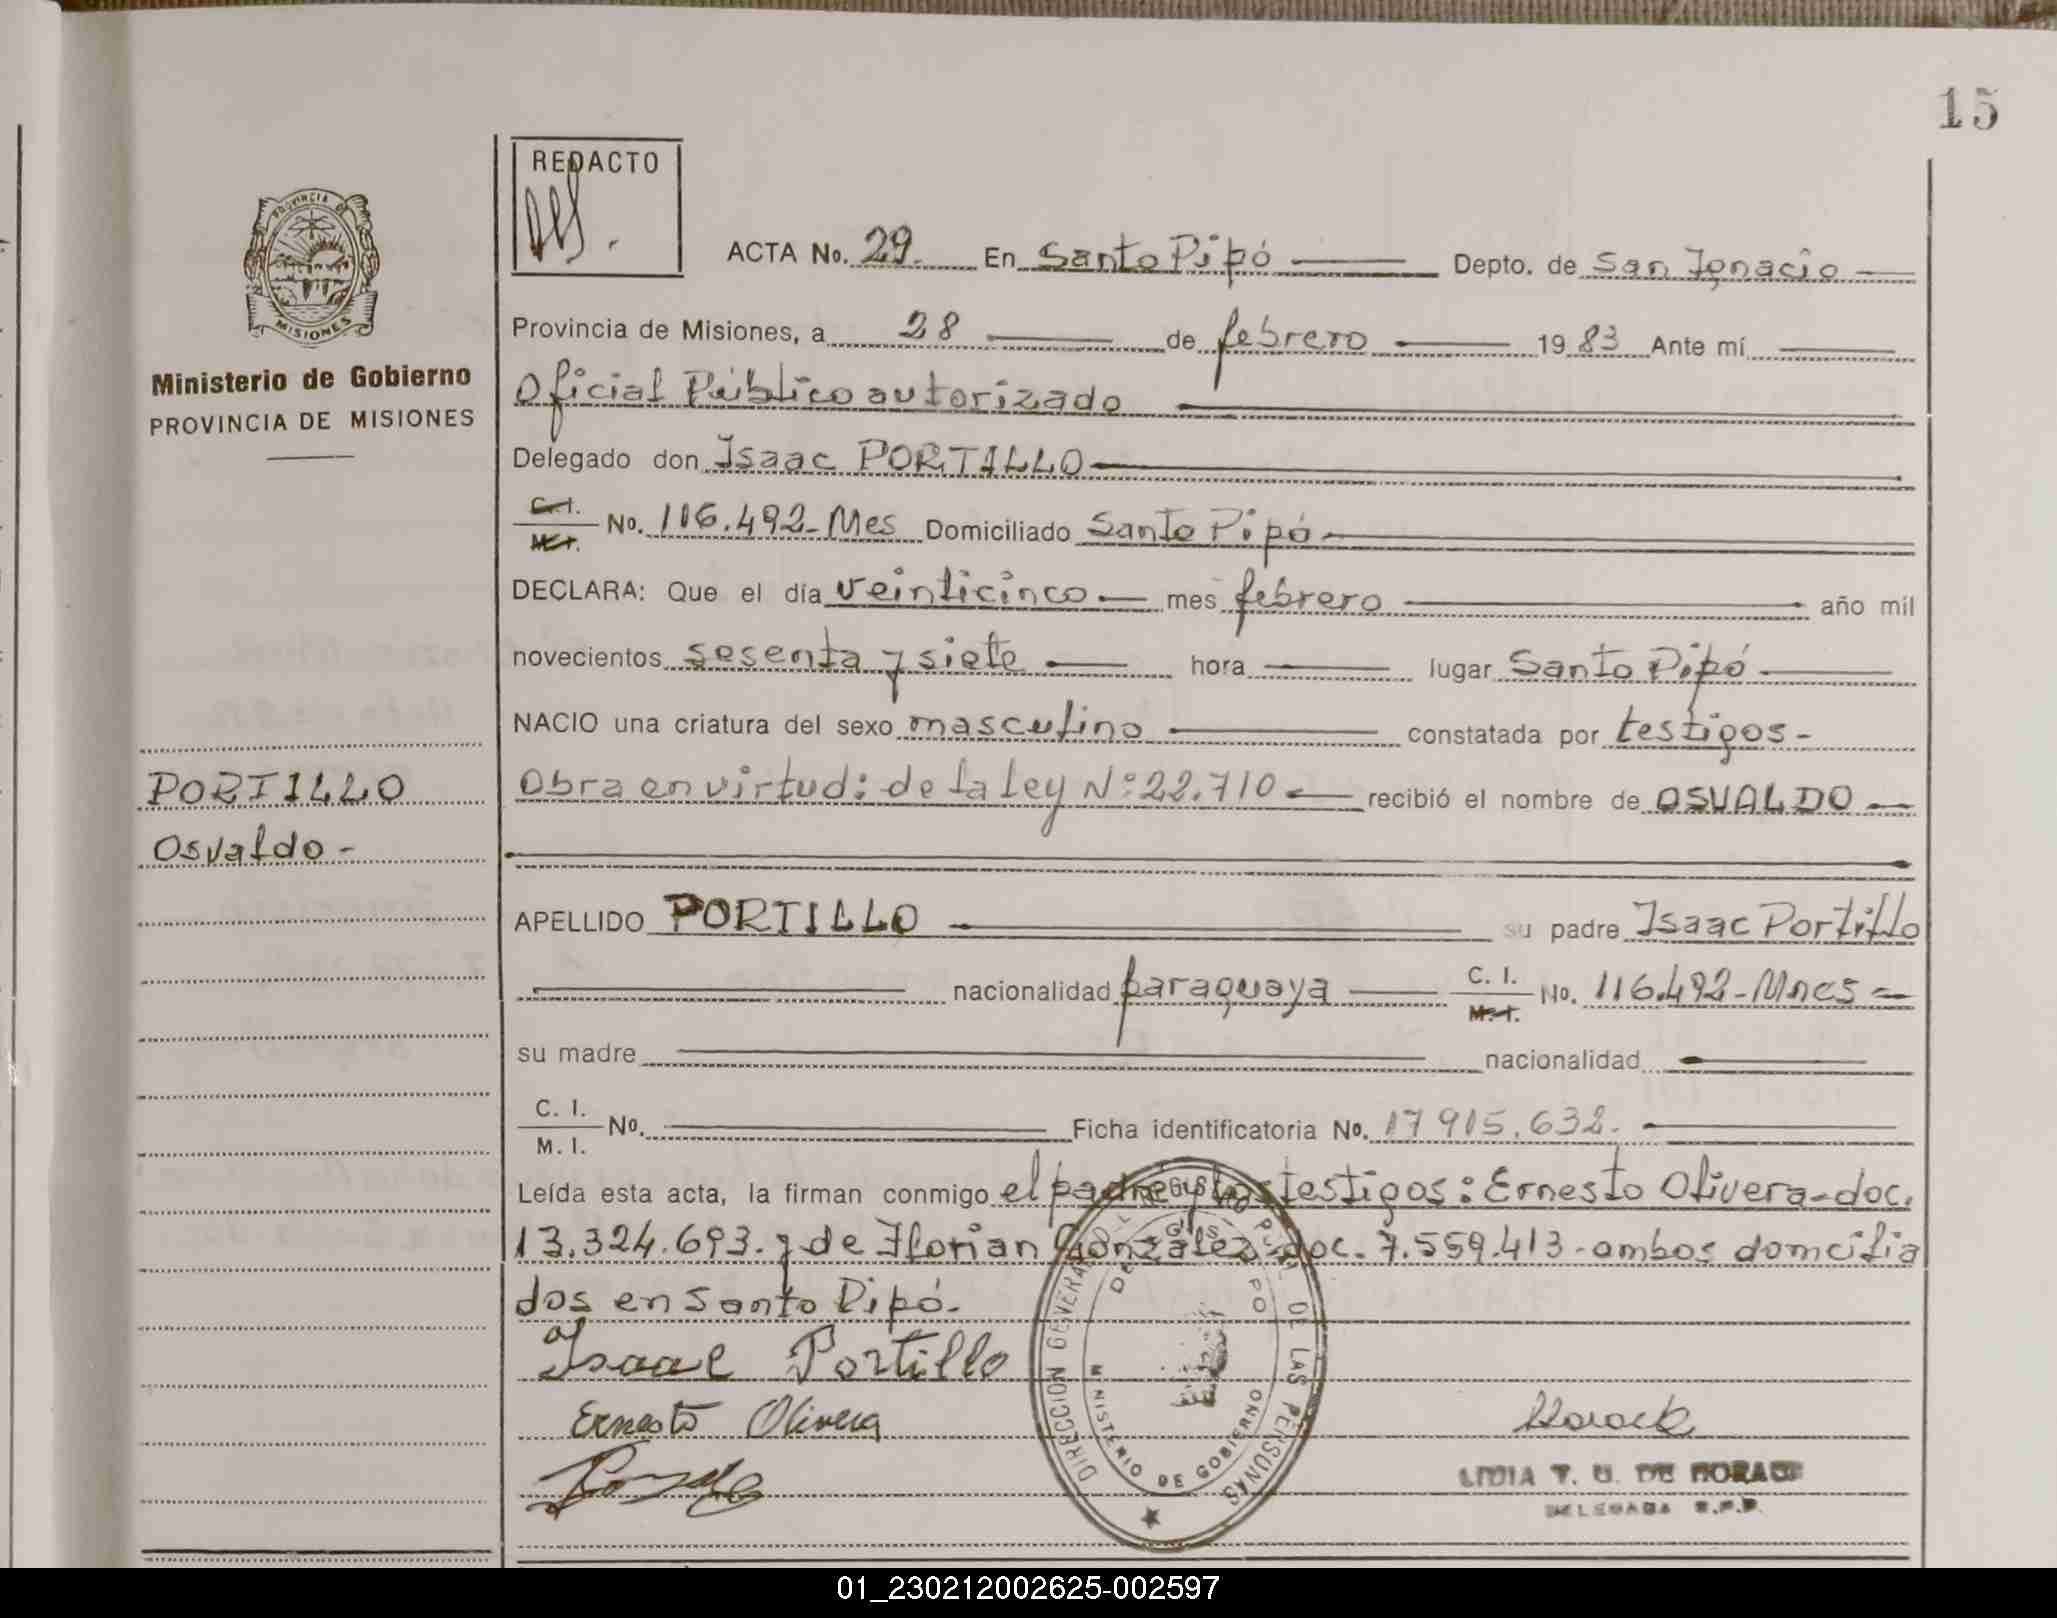 15
REDACTO
ACTA No. 29. En Santo Pipó Depto. de San Ignacio
Provincia de Misiones, a 28 de febrero 1983 Ante mí
Oficial Público autorizado
Delegado don Isaac PORTILLO
C. I. M. I. No. 116.492-Mes Domiciliado Santo Pipó
DECLARA: Que el día veinticinco mes febrero año mil
novecientos sesenta y siete hora lugar Santo Pipó
NACIO una criatura del sexo masculino constatada por testigos-
Obra en virtud: de la Ley Nº: 22.710 recibió el nombre de OSVALDO
APELLIDO PORTILLO su padre Isaac Portillo
nacionalidad paraguaya C. I. M. I. No. 116.492-Mnes
su madre nacionalidad
C. I. M. I. No. Ficha identificatoria No. 17915.632.
Leída esta acta, la firman conmigo el padre y los testigos: Ernesto Olivera-doc.
13.324.693. y de Florian Gonzalez-doc. 7.559.413-ambos domicilia
dos en Santo Pipó.
Isaac Portillo
Ernesto Olivera
LIDIA T. U. DE HORACK
DELEGADA R.P.P.
PROVINCIA DE
MISIONES
Ministerio de Gobierno
PROVINCIA DE MISIONES
PORTILLO
Osvaldo-
DIRECCION GENERAL DE LAS PERSONAS
MINISTERIO DE GOBIERNO
01_230212002625-002597